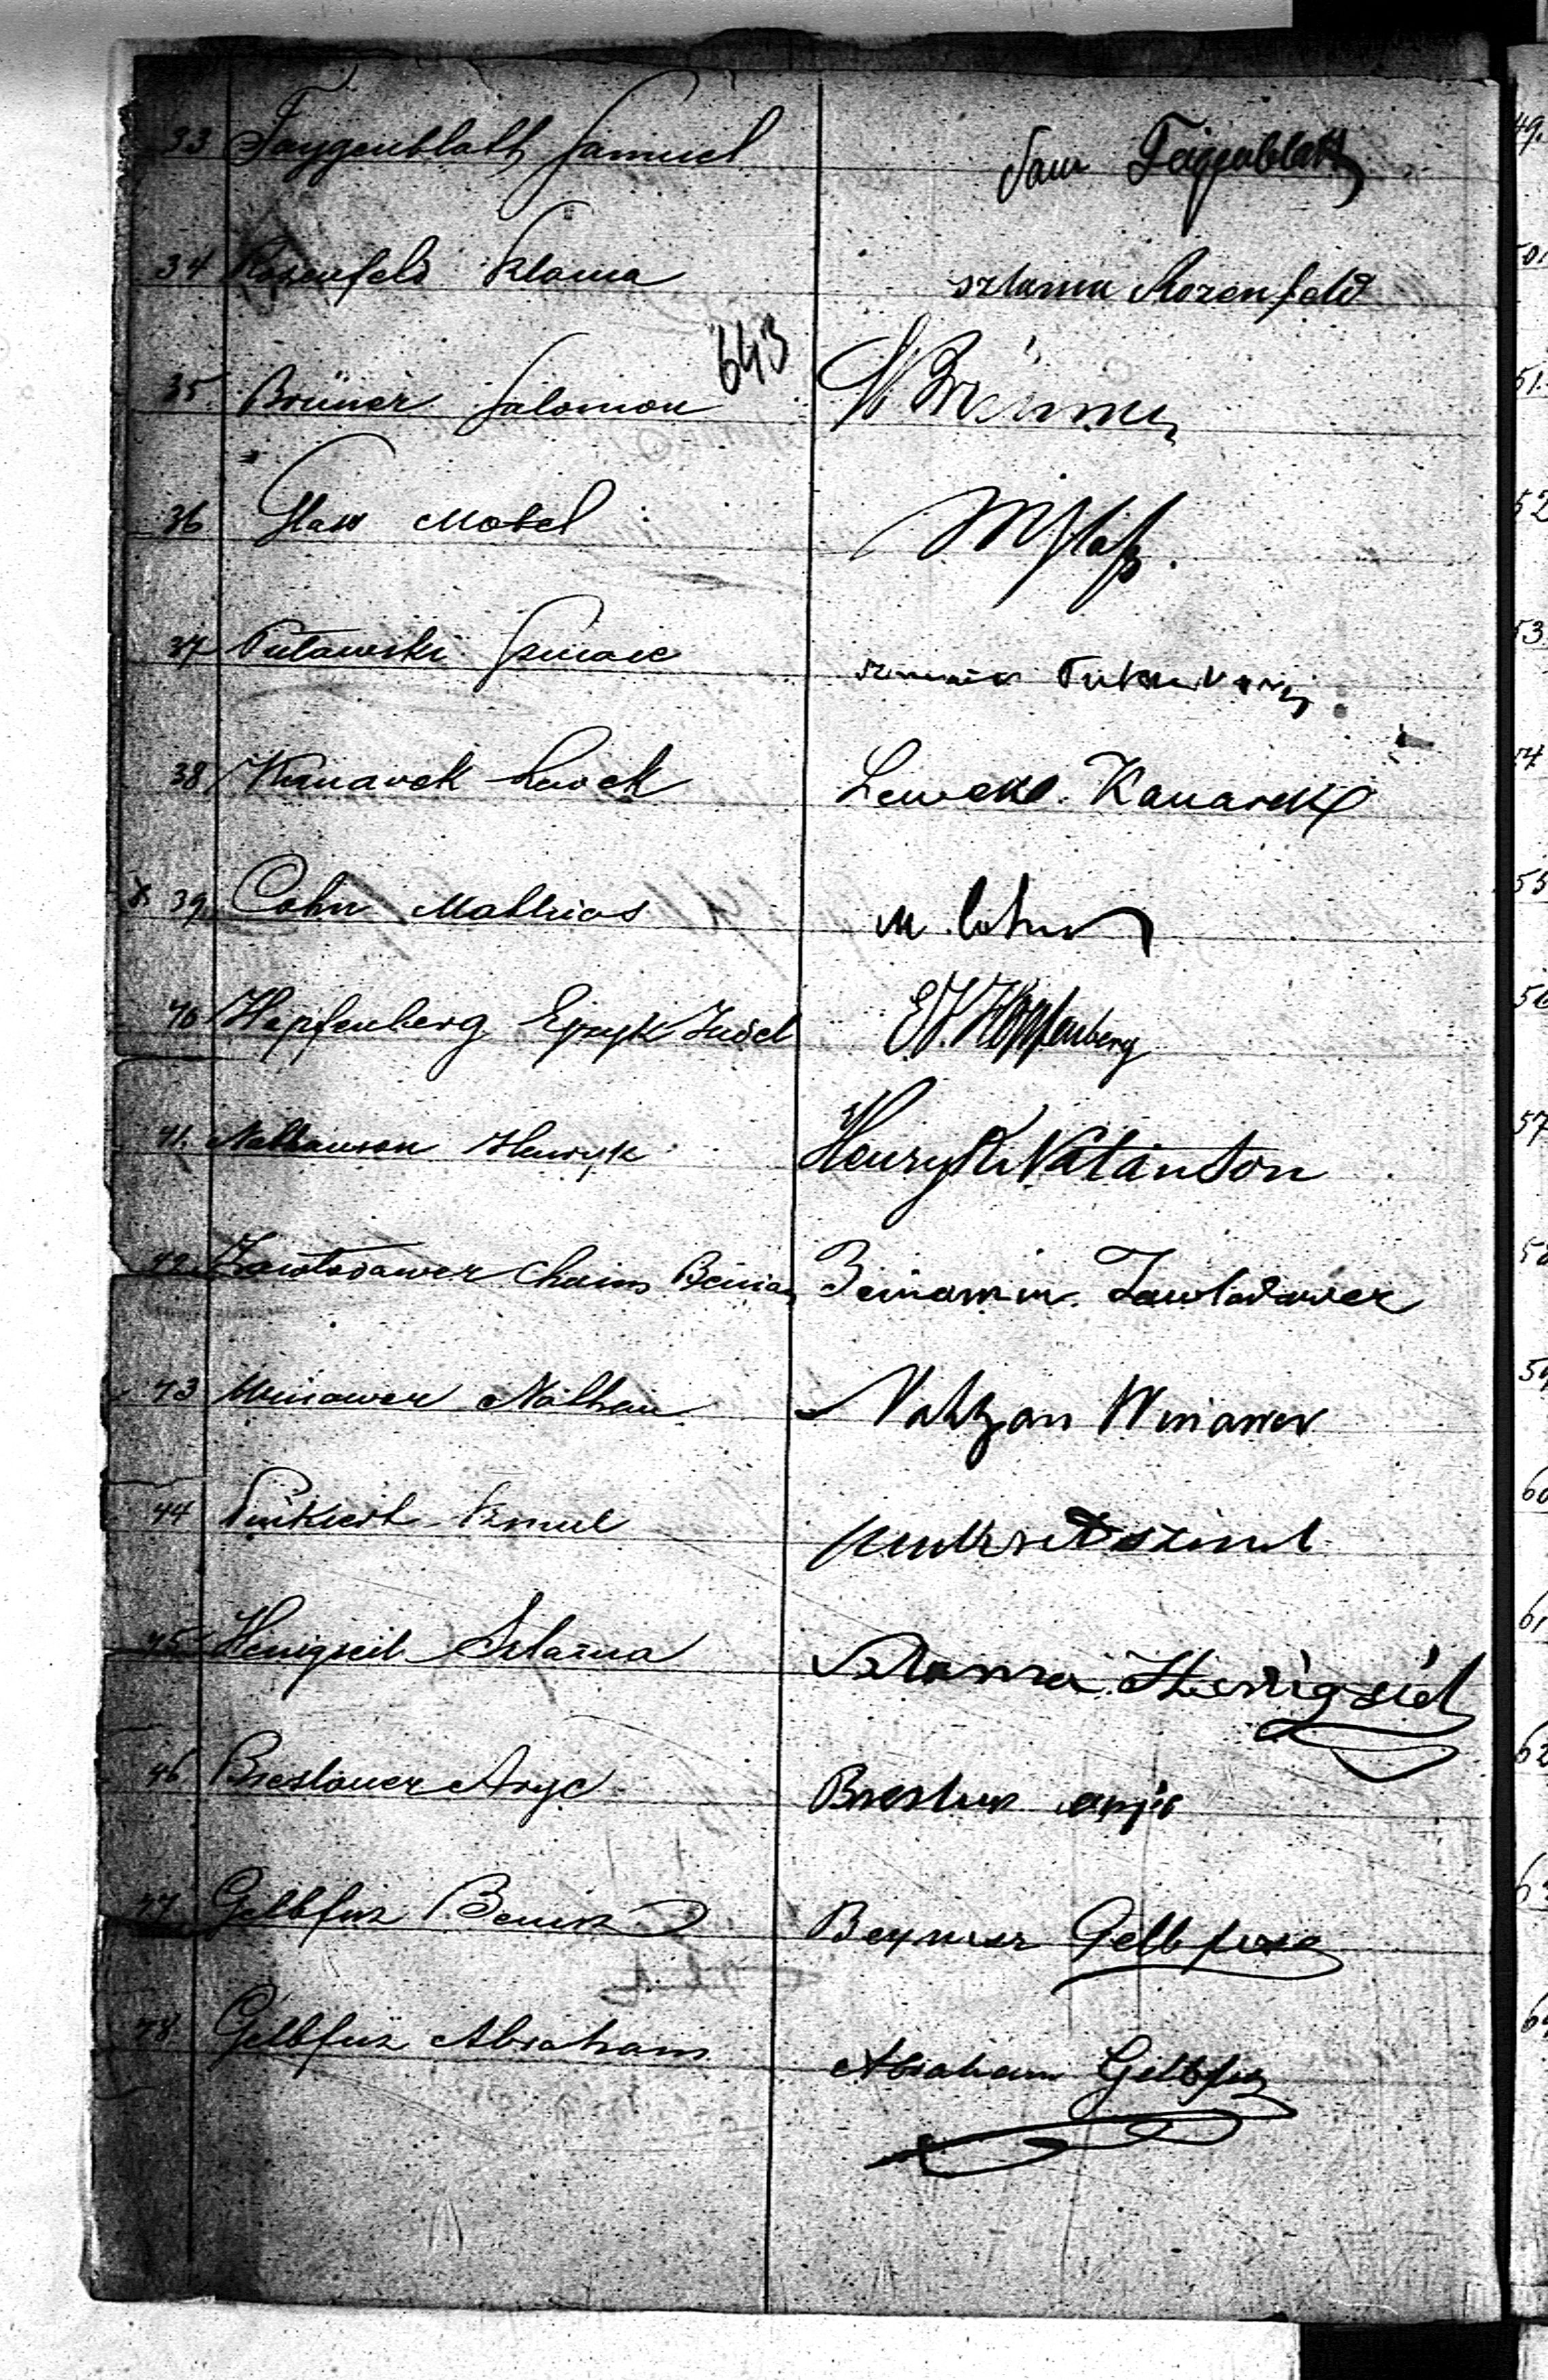 33 Faygenblatt Samuel Sam Feigenblatt
34 Rosenfeld Szlama szlama Rozenfeld
643
35 Brüner Salomon
36 Glass Motel M Glaß.
37 Szmaie
38 Kanarek Lewek Lewek Kanarek
x 39 Cohn Mathias M. Cohn
40 Hopfenberg Eyzyk Judel E. J. Hopfenberg
41. Nathanson Henryk Henryk Natanson
42 Zawłodawer Chaim Beniam Beniamin Zawłodawer
43 Winawer Nathan Natzan Winawer
44 Szmul
45 Henigseil Szlama Szlama Henigseil
46 Breslauer Arye Breslauer
47 Gelbfisz Gelbfisz
48 Gelbfisz Abraham Abraham Gelbfisz
49.
50.
51.
52
53
54
55
56
57
58
59
60
61
62
63
64